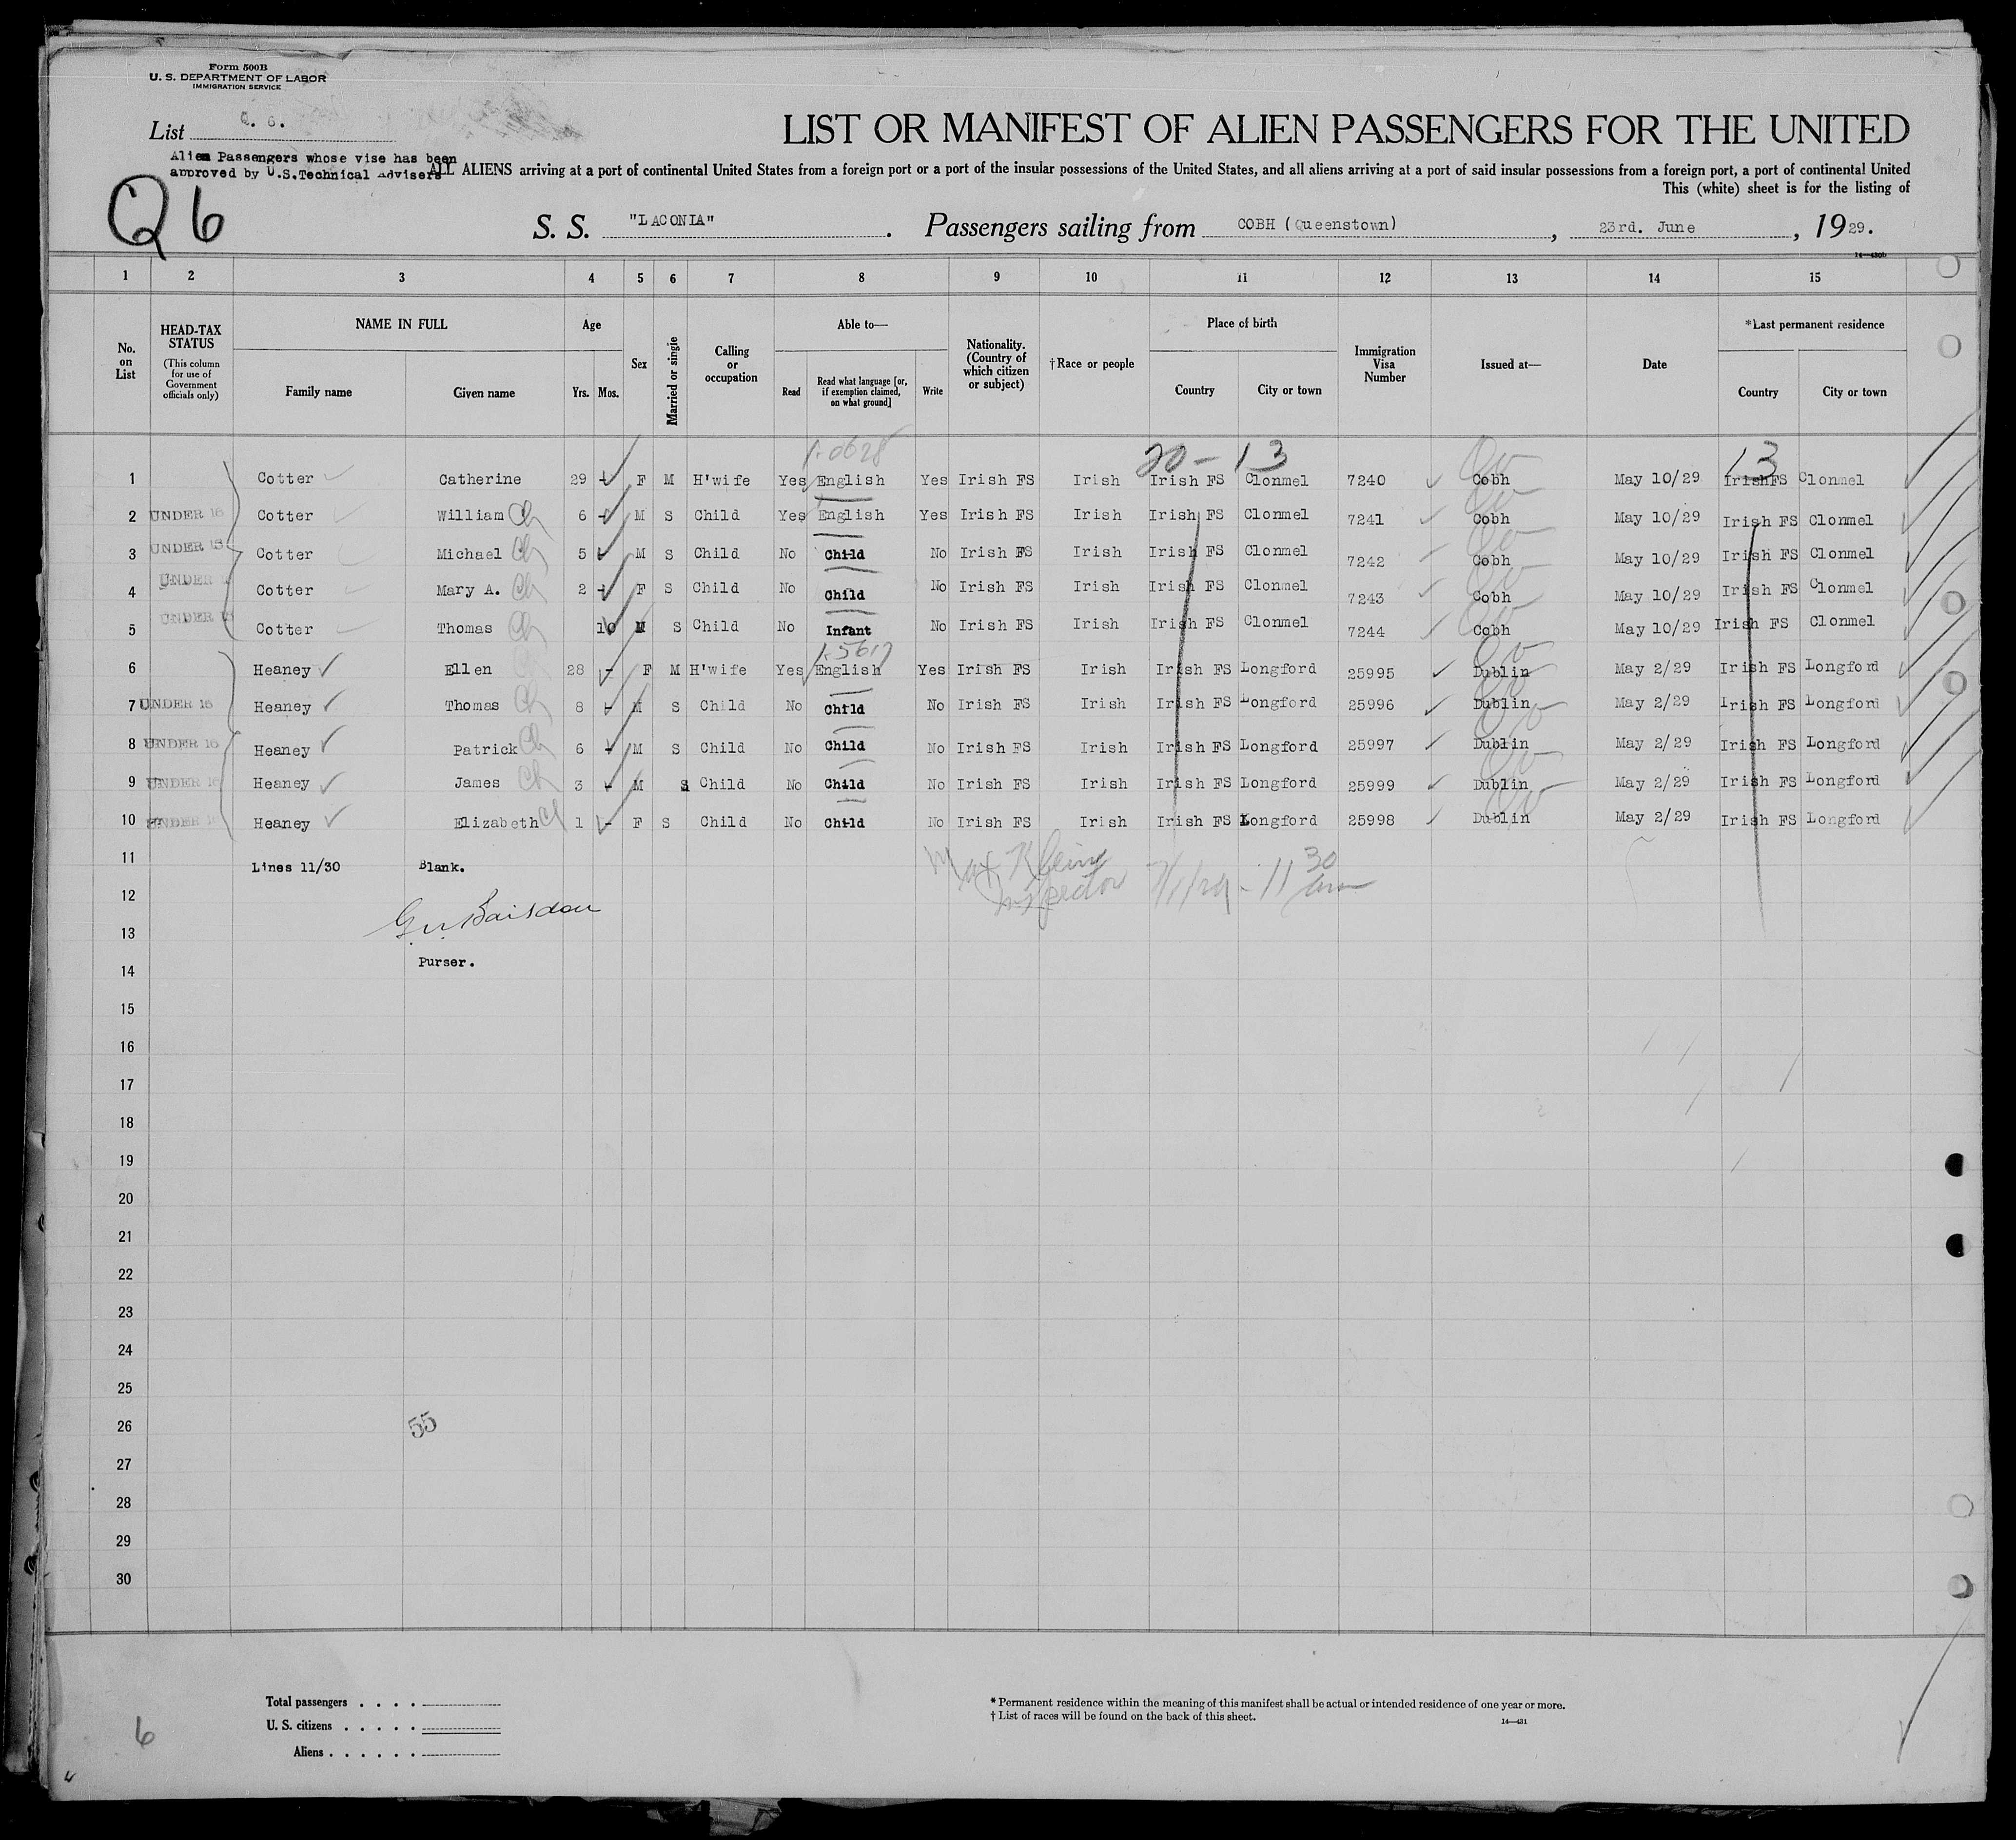 Form 500B
U. S. DEPARTMENT OF LABOR
IMMIGRATION SERVICE
List Q. 6.
LIST OR MANIFEST OF ALIEN PASSENGERS FOR THE UNITED
Alien Passengers whose vise has been
approved by U.S.Technical Advisers
ALL ALIENS arriving at a port of continental United States from a foreign port or a port of the insular possessions of the United States, and all aliens arriving at a port of said insular possessions from a foreign port, a port of continental United
This (white) sheet is for the listing of
Q 6
S. S. "LACONIA". Passengers sailing from COBH (Queenstown), 23rd. June, 1929.
14—430b
1 2 3 4 5 6 7 8 9 10 11 12 13 14 15
No. on List
HEAD-TAX STATUS
(This column for use of Government officials only)
NAME IN FULL
Family name Given name
Age
Yrs. Mos.
Sex
Married or single
Calling or occupation
Able to—
Read
Read what language [or, if exemption claimed, on what ground]
Write
Nationality. (Country of which citizen or subject)
†Race or people
Place of birth
Country City or town
Immigration Visa Number
Issued at—
Date
*Last permanent residence
Country City or town
1-0628 20-13 13
1 Cotter Catherine 29 - F M H'wife Yes English Yes Irish FS Irish Irish FS Clonmel 7240 Cobh May 10/29 Irish FS Clonmel
2 UNDER 16 Cotter William Ch 6 - M S Child Yes English Yes Irish FS Irish Irish FS Clonmel 7241 Cobh May 10/29 Irish FS Clonmel
3 UNDER 16 Cotter Michael Ch 5 - M S Child No Child No Irish FS Irish Irish FS Clonmel 7242 Cobh May 10/29 Irish FS Clonmel
4 UNDER Cotter Mary A. Ch 2 - F S Child No Child No Irish FS Irish Irish FS Clonmel 7243 Cobh May 10/29 Irish FS Clonmel
5 UNDER 16 Cotter Thomas Ch 10 M S Child No Infant No Irish FS Irish Irish FS Clonmel 7244 Cobh May 10/29 Irish FS Clonmel
1-5617
6 Heaney Ellen 28 - F M H'wife Yes English Yes Irish FS Irish Irish FS Longford 25995 Dublin May 2/29 Irish FS Longford
7 UNDER 16 Heaney Thomas Ch 8 - M S Child No Child No Irish FS Irish Irish FS Longford 25996 Dublin May 2/29 Irish FS Longford
8 UNDER 16 Heaney Patrick Ch 6 - M S Child No Child No Irish FS Irish Irish FS Longford 25997 Dublin May 2/29 Irish FS Longford
9 UNDER 16 Heaney James Ch 3 - M S Child No Child No Irish FS Irish Irish FS Longford 25999 Dublin May 2/29 Irish FS Longford
10 UNDER 16 Heaney Elizabeth Ch 1 - F S Child No Child No Irish FS Irish Irish FS Longford 25998 Dublin May 2/29 Irish FS Longford
11 Lines 11/30 Blank.
Max Klein 7/1/29 - 11 30 am
Inspector
12
13
Purser.
14
15
16
17
18
19
20
21
22
23
24
25
26
55
27
28
29
30
Total passengers . . . .
U. S. citizens . . . . .
Aliens . . . . . .
* Permanent residence within the meaning of this manifest shall be actual or intended residence of one year or more.
† List of races will be found on the back of this sheet.
14—431
6